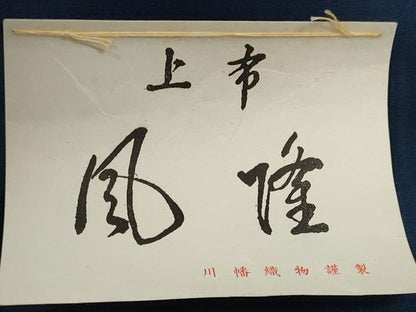 上布
風隆
川幡織物謹製